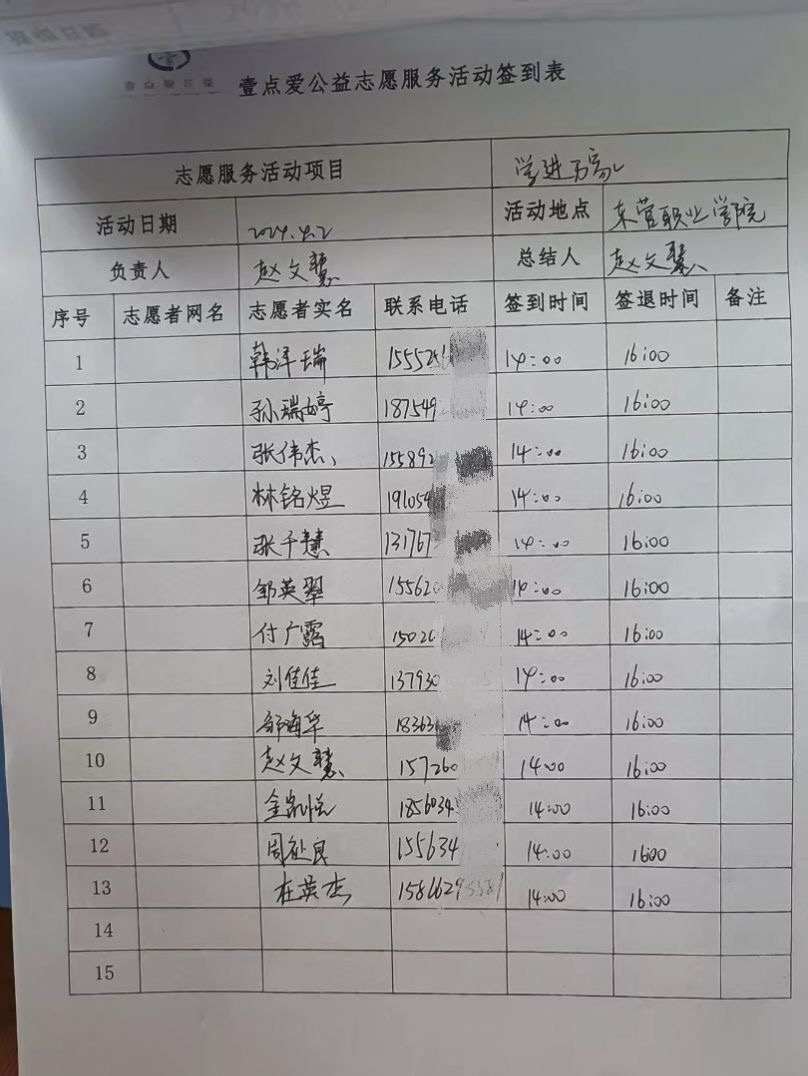 壹点爱公益
壹点爱公益志愿服务活动签到表
志愿服务活动项目 学进万家
活动日期 2024.4.2 活动地点 东营职业学院
负责人 赵文慧 总结人 赵文慧
序号 志愿者网名 志愿者实名 联系电话 签到时间 签退时间 备注
1 韩泽瑞 15552 14:00 16:00
2 孙瑞婷 187549 14:00 16:00
3 张伟杰 155892 14:00 16:00
4 林铭煜 191054 14:00 16:00
5 张子慧 131767 14:00 16:00
6 邹英翠 155620 14:00 16:00
7 付广露 15026 14:00 16:00
8 刘佳佳 137930 14:00 16:00
9 邹海华 18363 14:00 16:00
10 赵文慧 157260 14:00 16:00
11 金凯悦 1856034 14:00 16:00
12 周 155634 14:00 1600
13 杜英杰 1586629 14:00 16:00
14
15